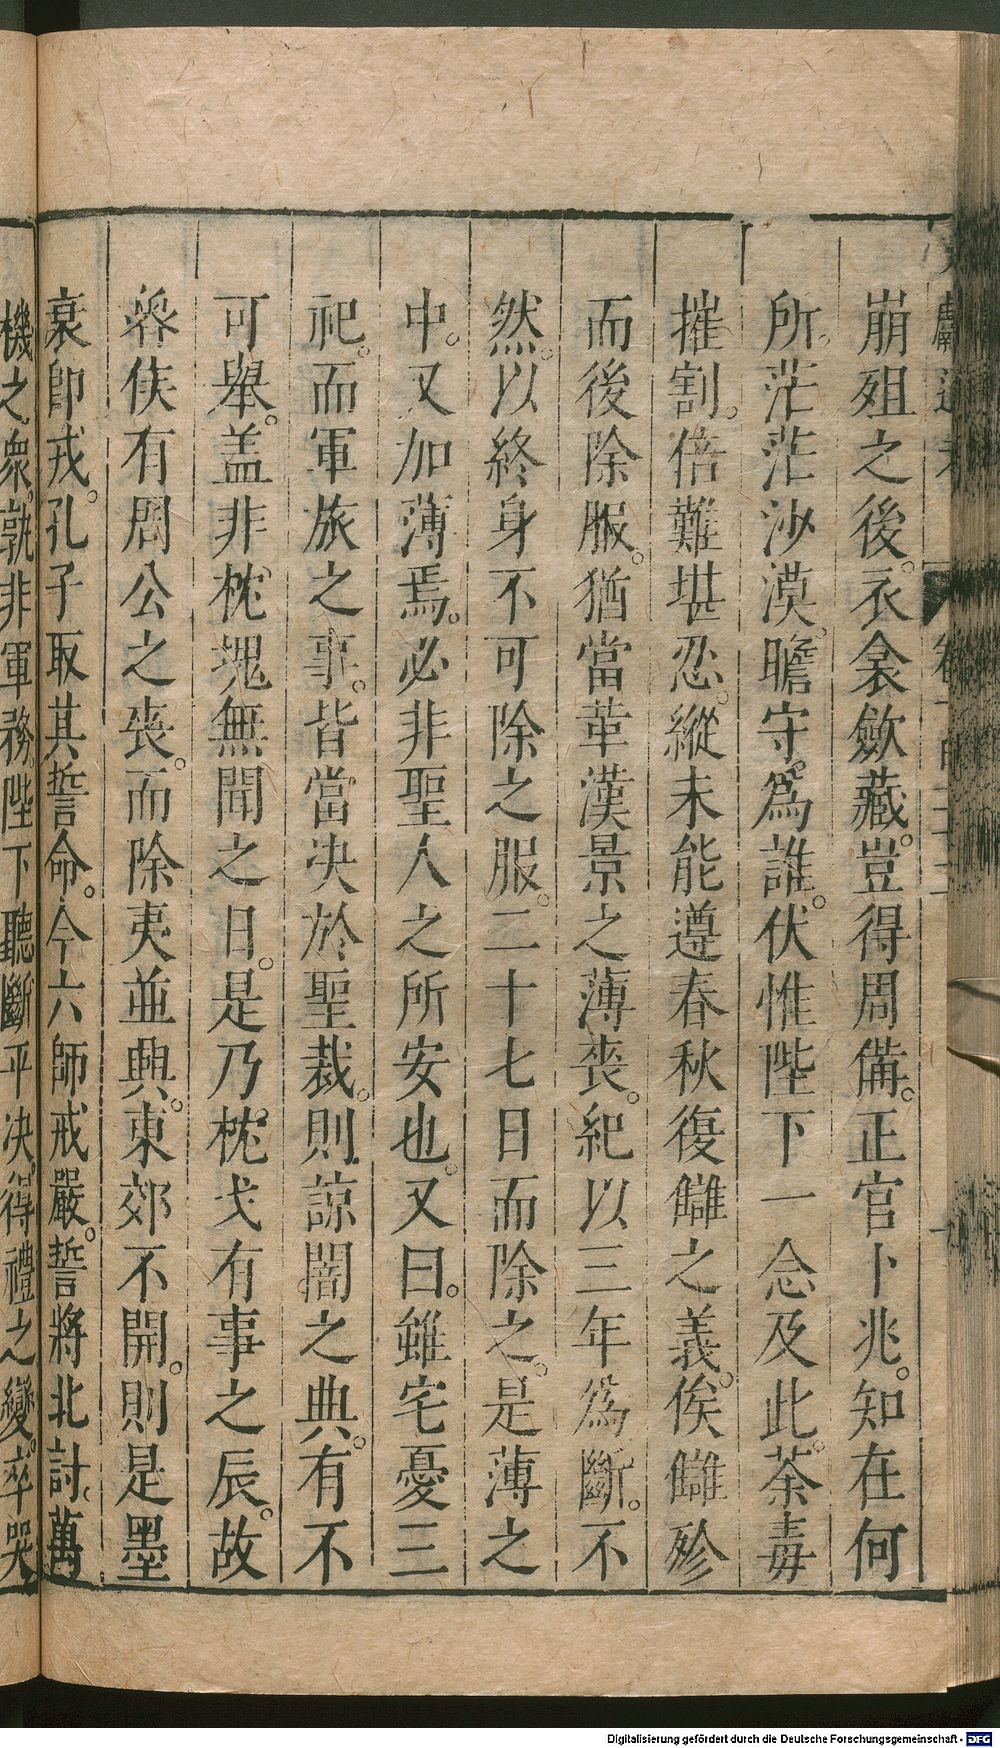 崩殂之後。衣衾斂藏。豈得周備。正官卜兆。知在何
所。茫茫沙漠。瞻守爲誰。伏惟陛下一念及此。荼毒
摧割。倍難堪忍。縱未能遵春秋復讎之義。俟讎殄
而後除服。猶當革漢景之薄喪。紀以三年爲斷。不
然。以終身不可除之服。二十七日而除之。是薄之
中。又加薄焉。必非聖人之所安也。又曰。雖宅憂三
祀。而軍旅之事。皆當决於聖裁。則諒闇之典。有不
可舉。盖非枕塊無聞之日。是乃枕戈有事之辰。故
魯侯有周公之喪。而除夷並興。東郊不開。則是墨
衰即戎。孔子取其誓命。今六師戒嚴。誓將北討。萬
機之衆。孰非軍務。陛下聽斷平决。得禮之變。卒哭
Digitalisierung gefördert durch die Deutsche Forschungsgemeinschaft - DFG